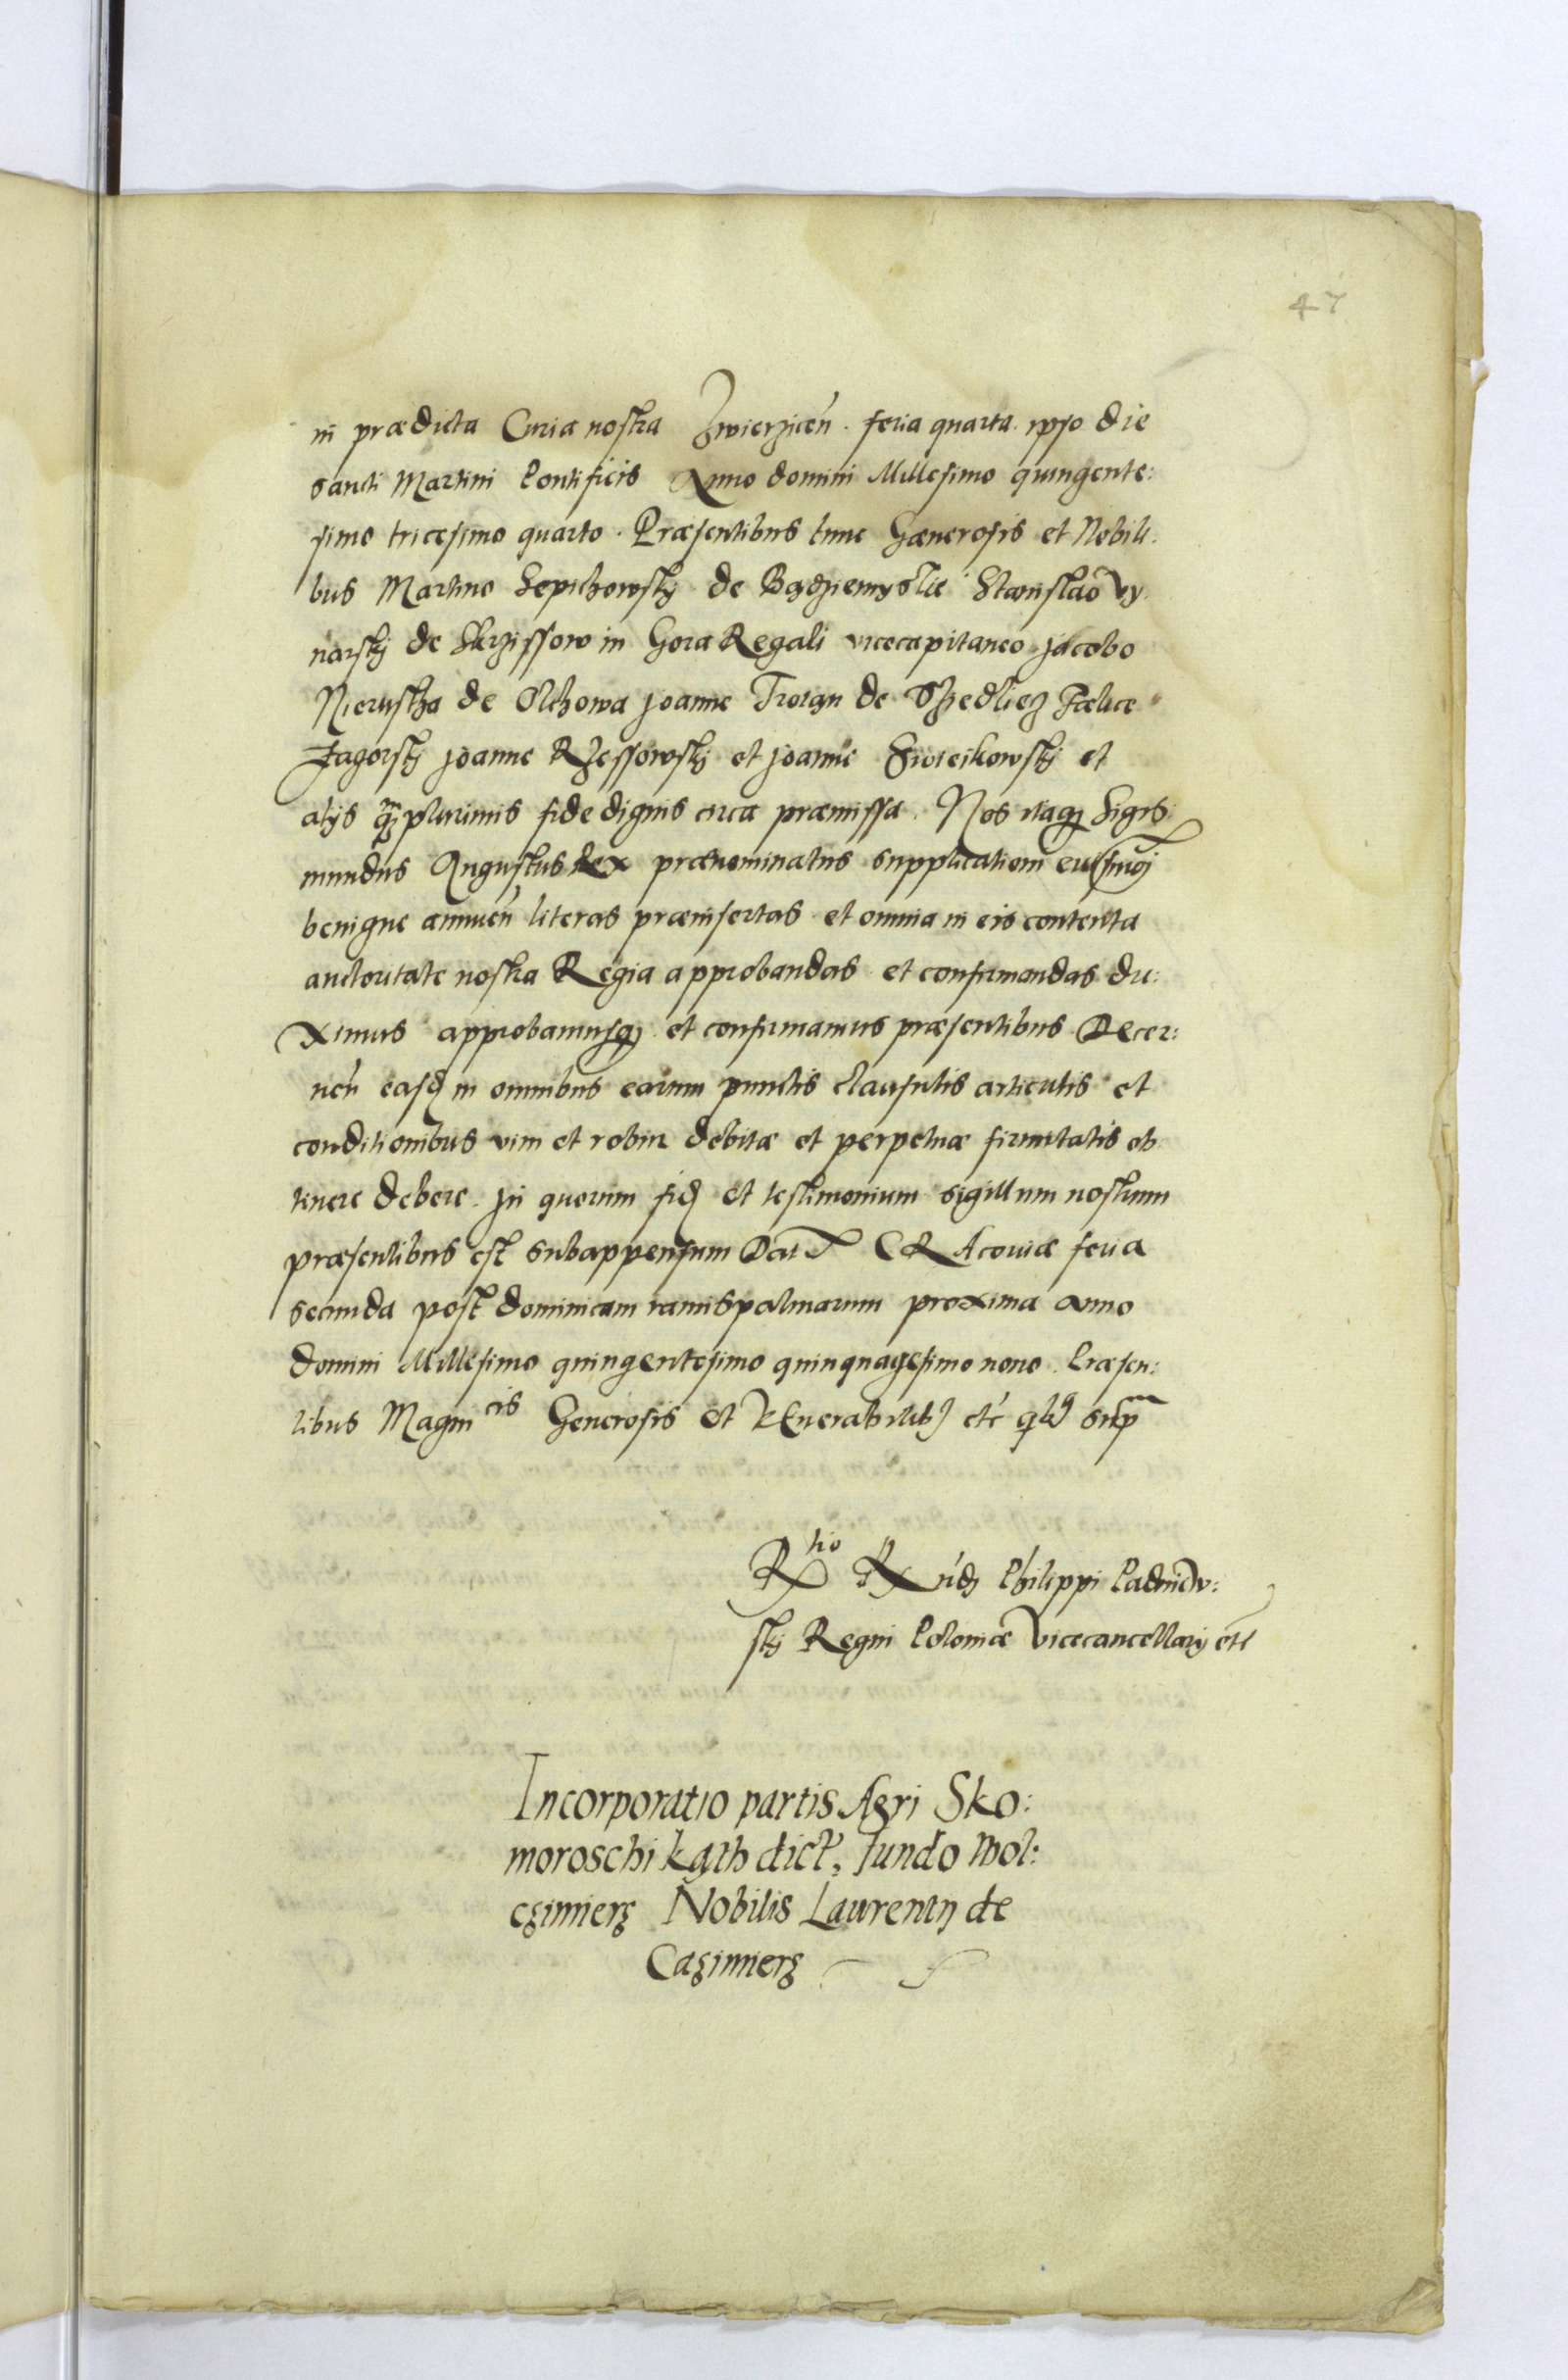 47
in prædicta Curia nostra Zwierzicen̄. feria quarta ipso die
sancti Martini Pontificis Anno domini Millesimo quingente:
simo tricesimo quarto. Præsentibus tunc Gænerosis et Nobili:
bus Martino Lepichowskj de Bądziemyslie Stanislao Vy
narskj de Skrzissow in Gora Regali vicecapitaneo Jacobo
Nieruska de Olchowa Joanne Trojan de Schedliez Fælice
Zagorskj Joanne Rzessowskj et Joanne Switeikowskj et
alijs qmplurimis fide dignis circa præmissa. Nos itaqꝫ Sigis
mundus Augustus Rex prænominatus supplicationi eiusmoj
benigne annuen̄ literas præinsertas et omnia in eis contenta
auctoritate nostra Regia approbandas et confirmandas du:
ximus approbamusqꝫ et confirmamus præsentibus Decer:
nen̄ easd in omnibus earum punctis clausulis articulis et
conditionibus vim et robur debitæ et perpetuæ firmitatis ob
tinere debere. In quorum fid et testimonium sigillum nostrum
præsentibus est subappensum Dat CRAcoviæ feria
secunda post dominicam ramispalmarum proxima anno
domini Millesimo quingentesimo quinquagesimo nono. Præsen:
tibus Magnicis Generosis et VEnerabilibꝫ etc̄ supra
Rtio Rndj Philippi Padniew:
skj Regni Poloniæ Vicecancellarij etc
Incorporatio partis Agri Sko:
moroschi kąth dict, fundo Wol:
czimierz Nobilis Laurentij de
Cazimierz